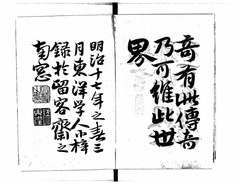 奇有此傳奇
乃可維此世
界
明治十七年之春三
月東洋学人小梓
録於留客齋之
南窓